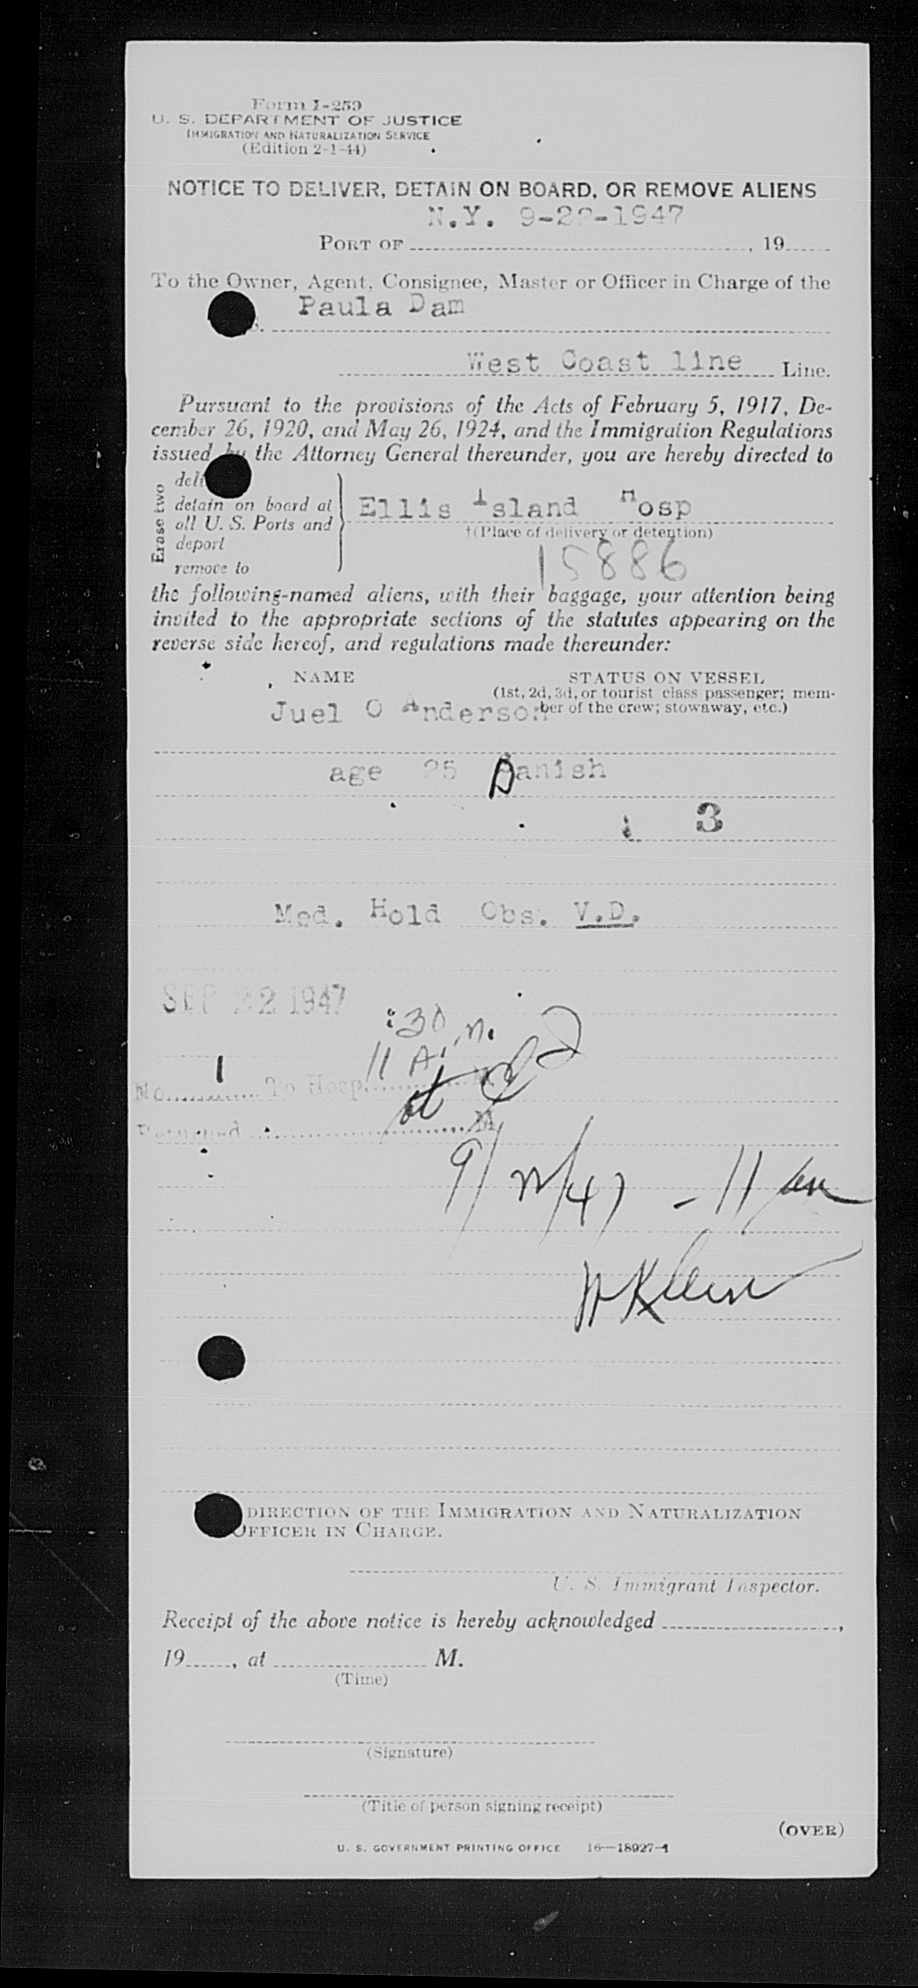 Form I-259
U. S. DEPARTMENT OF JUSTICE
IMMIGRATION AND NATURALIZATION SERVICE
(Edition 2-1-44)
NOTICE TO DELIVER, DETAIN ON BOARD, OR REMOVE ALIENS
N.Y. 9-22-1947
PORT OF , 19
To the Owner, Agent, Consignee, Master or Officer in Charge of the
Paula Dam
West Coast line Line.
Pursuant to the provisions of the Acts of February 5, 1917, De-
cember 26, 1920, and May 26, 1924, and the Immigration Regulations
issued by the Attorney General thereunder, you are hereby directed to
Erase two
detain on board at
all U. S. Ports and
deport
remove to
Ellis Island Hosp
†(Place of delivery or detention)
15886
the following-named aliens, with their baggage, your attention being
invited to the appropriate sections of the statutes appearing on the
reverse side hereof, and regulations made thereunder:
NAME STATUS ON VESSEL
(1st, 2d, 3d, or tourist class passenger; mem-
ber of the crew; stowaway, etc.)
Juel O Anderson
age 25 Danish
3
Med. Hold Obs. V.D.
SEP 22 1947
:30
11 A.M.
No. 1 To Hosp. M
at
Returned M
9/22/47 - 11 am
W Klein
DIRECTION OF THE IMMIGRATION AND NATURALIZATION
OFFICER IN CHARGE.
U. S. Immigrant Inspector.
Receipt of the above notice is hereby acknowledged ,
19 , at M.
(Time)
(Signature)
(Title of person signing receipt)
(OVER)
U. S. GOVERNMENT PRINTING OFFICE 16—18927-1